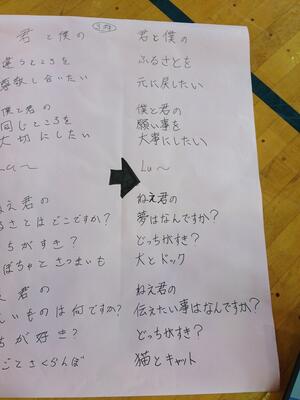 君と僕の
違うところを
尊敬し合いたい
僕と君の
同じところを
大切にしたい
ねえ君の
るさとはどこですか?
ちがすき?
ぼちゃとさつまいも
君の
いものは何ですか?
ちが好き?
ごとさくらんぼ
君と僕の
ふるさとを
元に戻したい
僕と君の
願い事を
大事にしたい
Lu～
ねえ君の
夢はなんですか?
どっちがすき?
犬とドック
ねえ君の
伝えたい事はなんですか?
どっちがすき?
猫とキャット